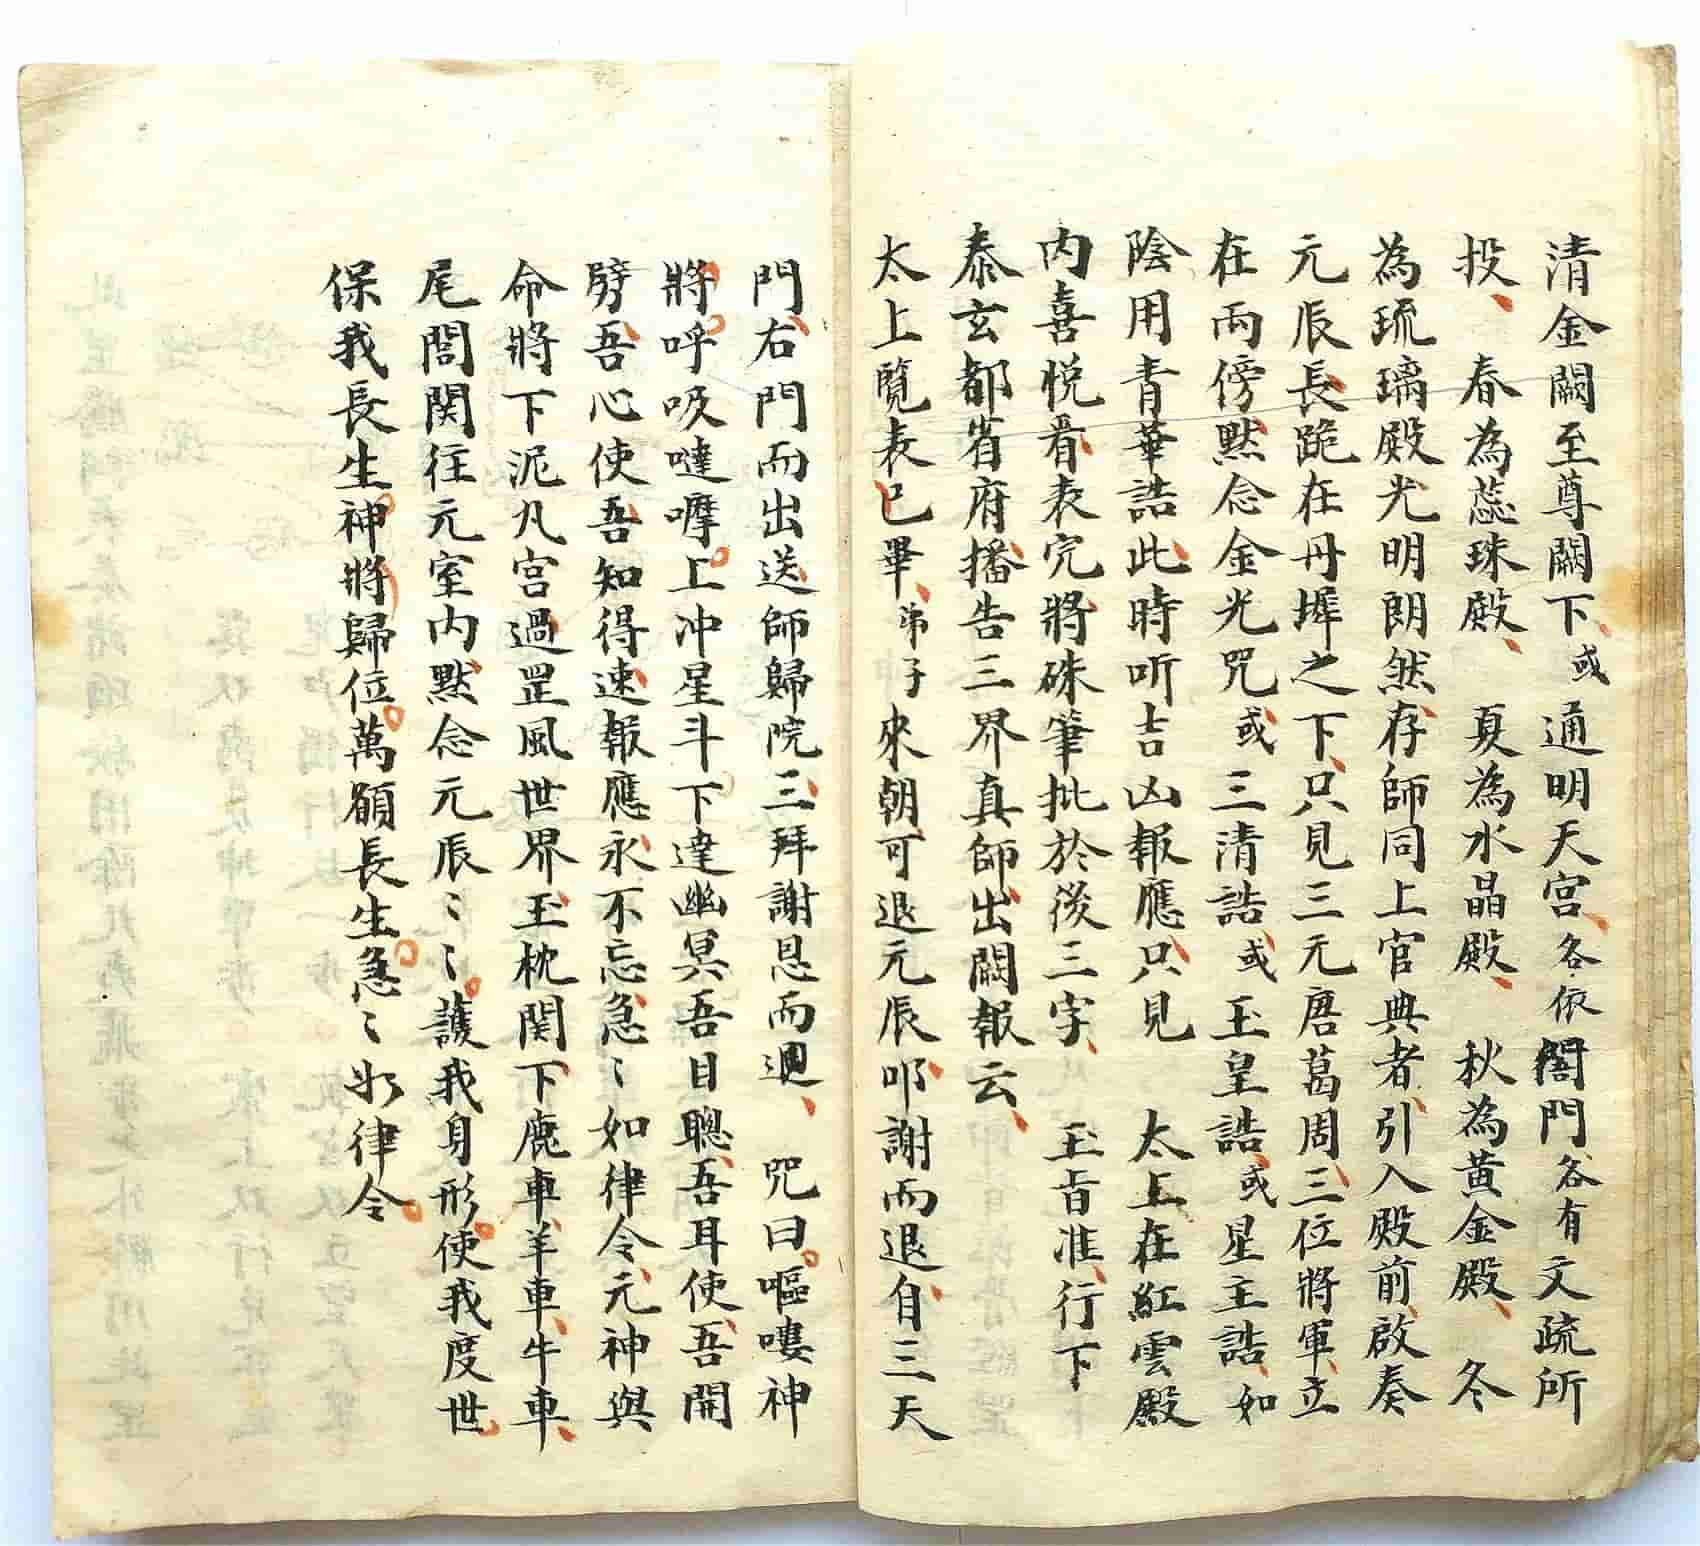 清金闕至尊闕下、或通明天宮、各依閣門、各有文疏所
投、春為蕊珠殿、夏為水晶殿、秋為黃金殿、冬
為琉璃殿、光明朗然、存師同上官典者、引入殿前、啟奏
元辰長跪在丹墀之下、只見三元唐葛周、三位將軍、立
在兩傍、默念金光咒、或三清誥、或玉皇誥、或星主誥、如
陰用青華誥、此時听吉凶報應、只見太上在紅雲殿
內喜悅、看表完、將硃筆批於後三字、玉旨准、行下
泰玄都省府、播告三界真師、出闕報云、
太上覽表已畢、弟子來朝可退元辰叩、謝而退、自三天
門、右門而出送、師歸院、三拜謝恩而迴、咒曰。嘔嘍神
將。呼。吸噠嚤。上冲星斗。下達幽冥吾目聰、吾耳使、吾開
劈、吾心使、吾知得速、報應、永不忘、急〻如律令、元神與
命將下泥凡宮過罡風世界、玉枕関下、鹿車、羊車、牛車、
尾閭関往元室內、默念元辰〻〻。護我身形。使我度世、
保我長生。神將歸位。萬願長生。急〻如律令。